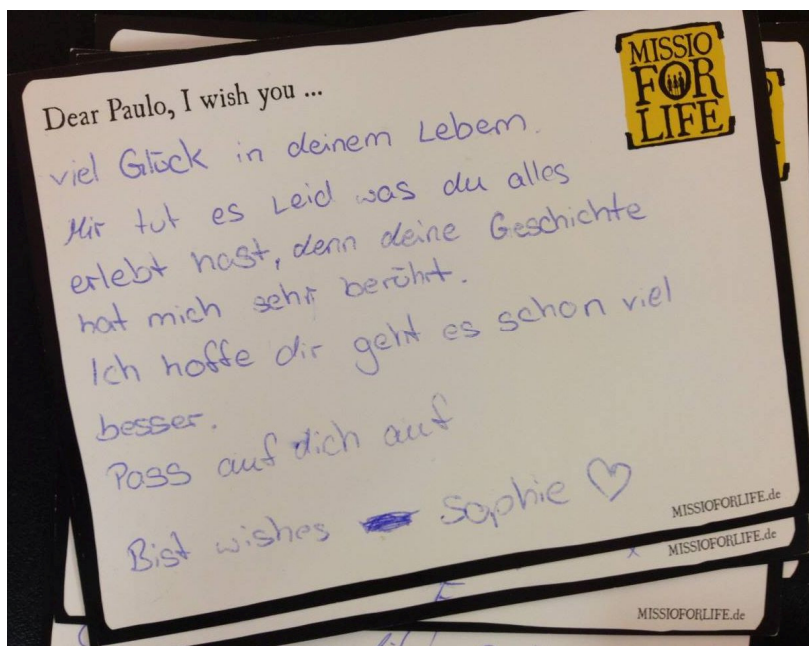 Dear Paulo, I wish you ...
MISSIO
FOR
LIFE
viel Glück in deinem Leben.
Mir tut es Leid was du alles
erlebt hast, denn deine Geschichte
hat mich sehr berührt.
Ich hoffe dir geht es schon viel
besser.
Pass auf dich auf
Bist wishes Sophie ♡
MISSIOFORLIFE.de
MISSIOFORLIFE.de
MISSIOFORLIFE.de